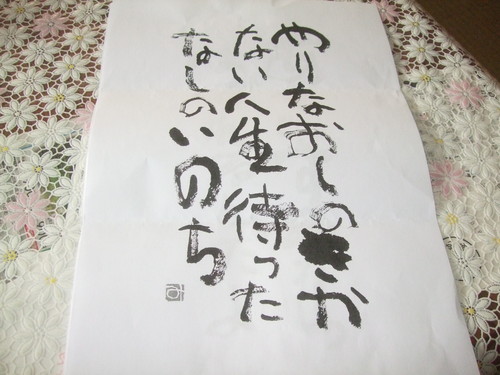 やりなおしのきか
ない人生待った
なしのいのち